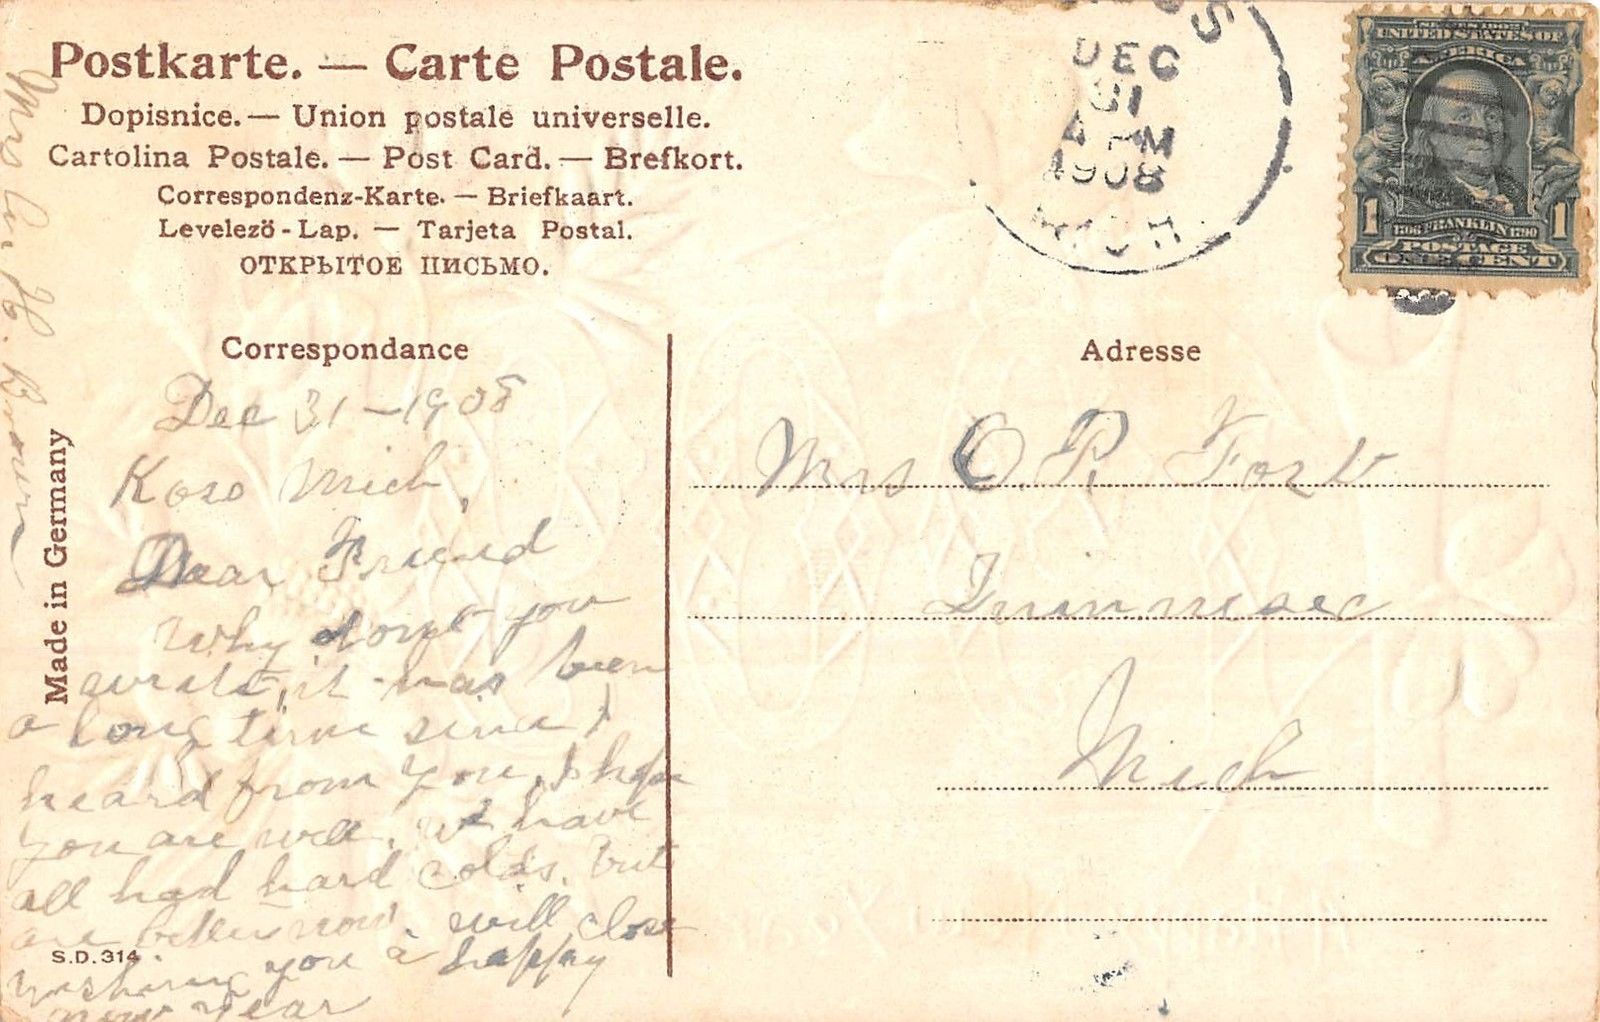 Postkarte. — Carte Postale.
Dopisnice. — Union postale universelle.
Cartolina Postale. — Post Card. — Brefkort.
Correspondenz-Karte. — Briefkaart.
Levelező-Lap. — Tarjeta Postal.
ОТКРЫТОЕ ПИСЬМО.
DEC
31
4 PM
1908
MICH.
SERIES 1902
UNITED STATES OF
AMERICA
1 1
1706 FRANKLIN 1790
POSTAGE
ONE CENT
Correspondance
Dec 31 - 1908
Koss Mich.
Dear Friend
Why dont you
write, it has been
a long time since I
heard from you, I hope
you are well. we have
all had hard colds. but
are better now. will close
wishing you a happy
new year
Mrs H. Brown
Made in Germany
S.D. 314.
Adresse
Mrs O. P.
Mich